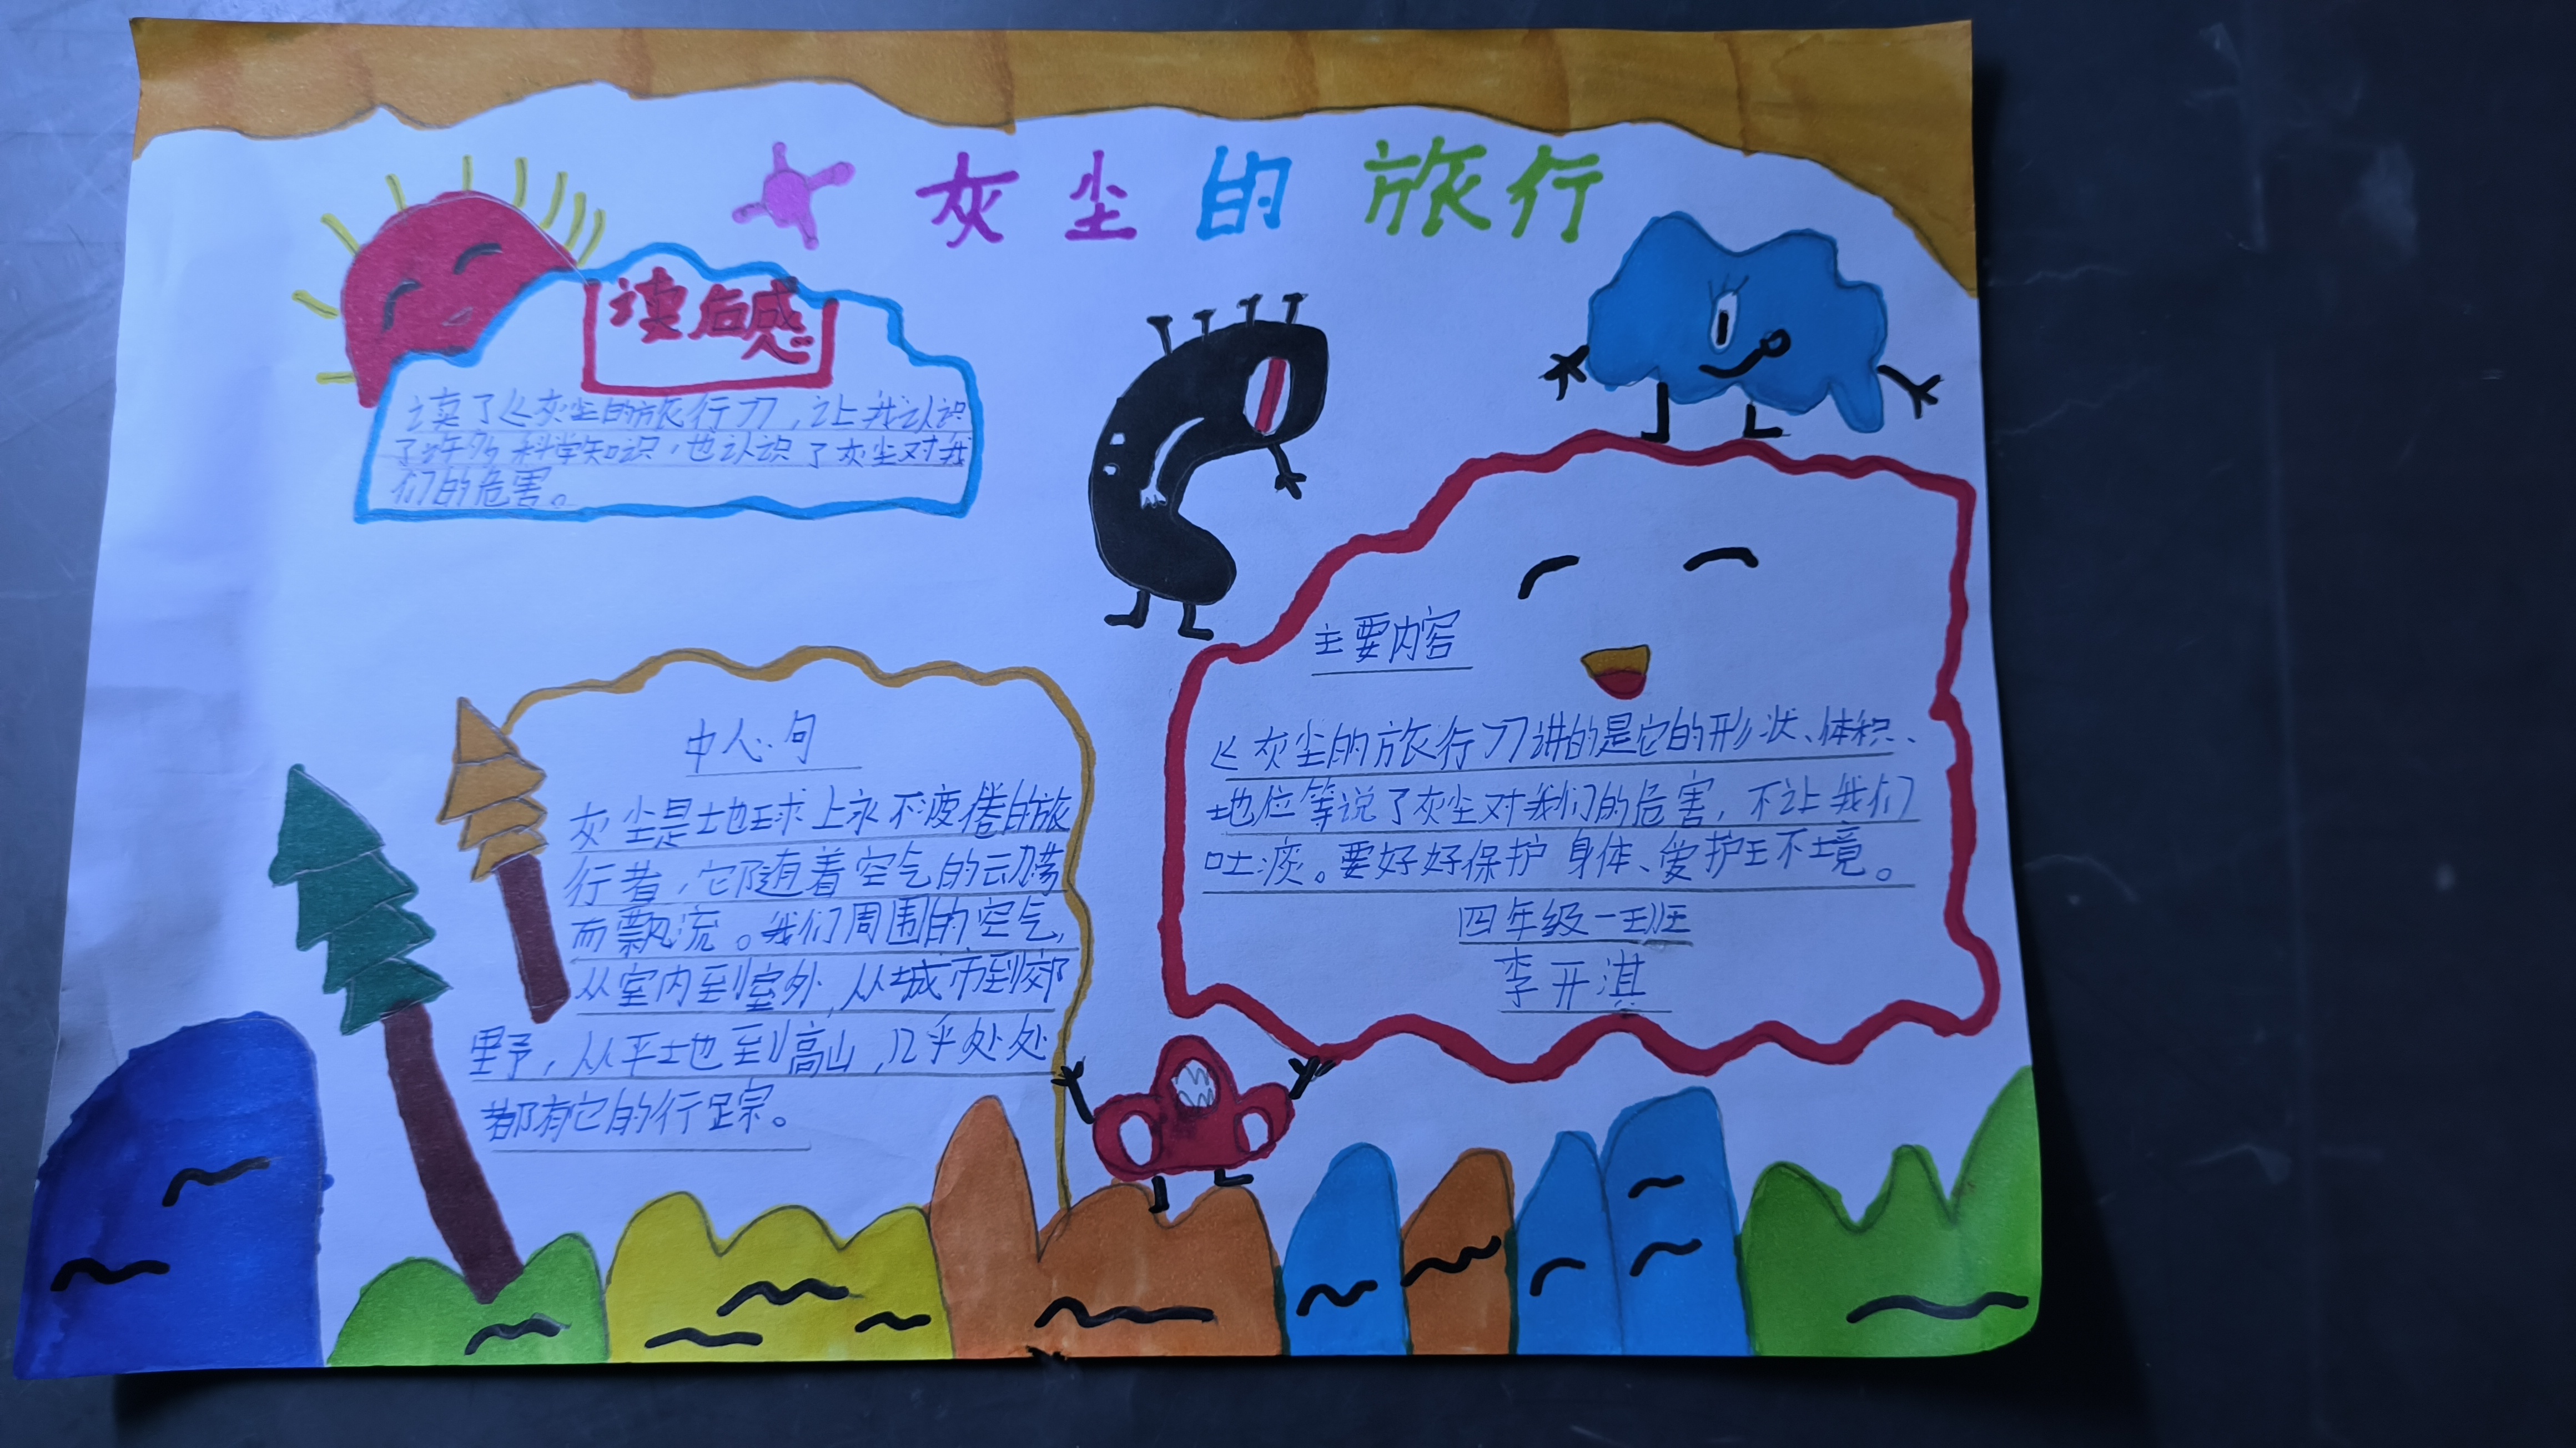 灰尘的旅行
读后感
读了《灰尘的旅行》，让我认识
了许多科学知识，也认识了灰尘对我
们的危害。
主要内容
《灰尘的旅行》讲的是它的形状、体积、
地位等说了灰尘对我们的危害，不让我们
吐痰。要好好保护身体、爱护环境。
四年级一班
李开淇
中心句
灰尘是地球上永不疲倦的旅
行者，它随着空气的动荡
而飘流。我们周围的空气，
从室内到室外，从城市到郊
野，从平地到高山，几乎处处
都有它的行踪。